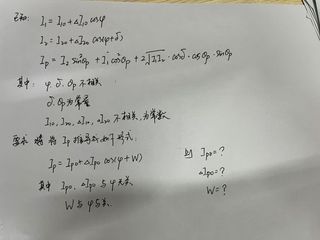 已知: I₁ = I₁₀ + ΔI₁₀ cosφ
I₂ = I₂₀ + ΔI₂₀ cos(φ+δ)
Ip = I₂ sin²θp + I₁ cos²θp + 2√I₁I₂ · cosδ · cosθp · sinθp
其中: φ. δ. θp 不相关
δ. θp 为常量
I₁₀, I₂₀, ΔI₁₀, ΔI₂₀ 不相关, 为常数
要求 将 Ip 推导成如下形式:
Ip = Ip₀ + ΔIp₀ cos(φ+W)
则 Ip₀ = ?
ΔIp₀ = ?
W = ?
其中 Ip₀, ΔIp₀ 与 φ 无关
W 与 φ 无关.